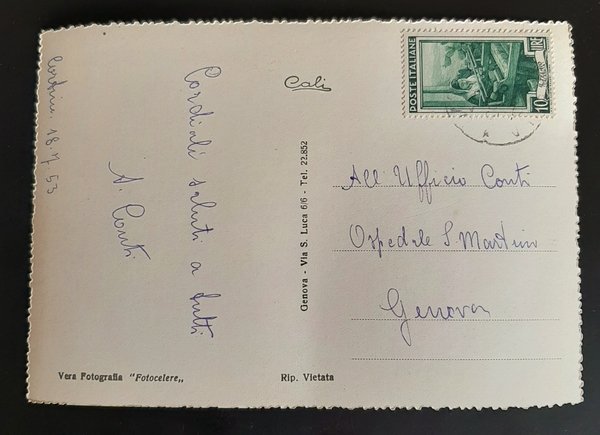 Cordiali saluti a tutti
A. Conti
18.7.53
Cali
Genova - Via S. Luca 6/6 - Tel. 22.852
POSTE ITALIANE
10
LIRE
All' Ufficio Conti
Ospedale S Martino
Genova
Vera Fotografia "Fotocelere„
Rip. Vietata